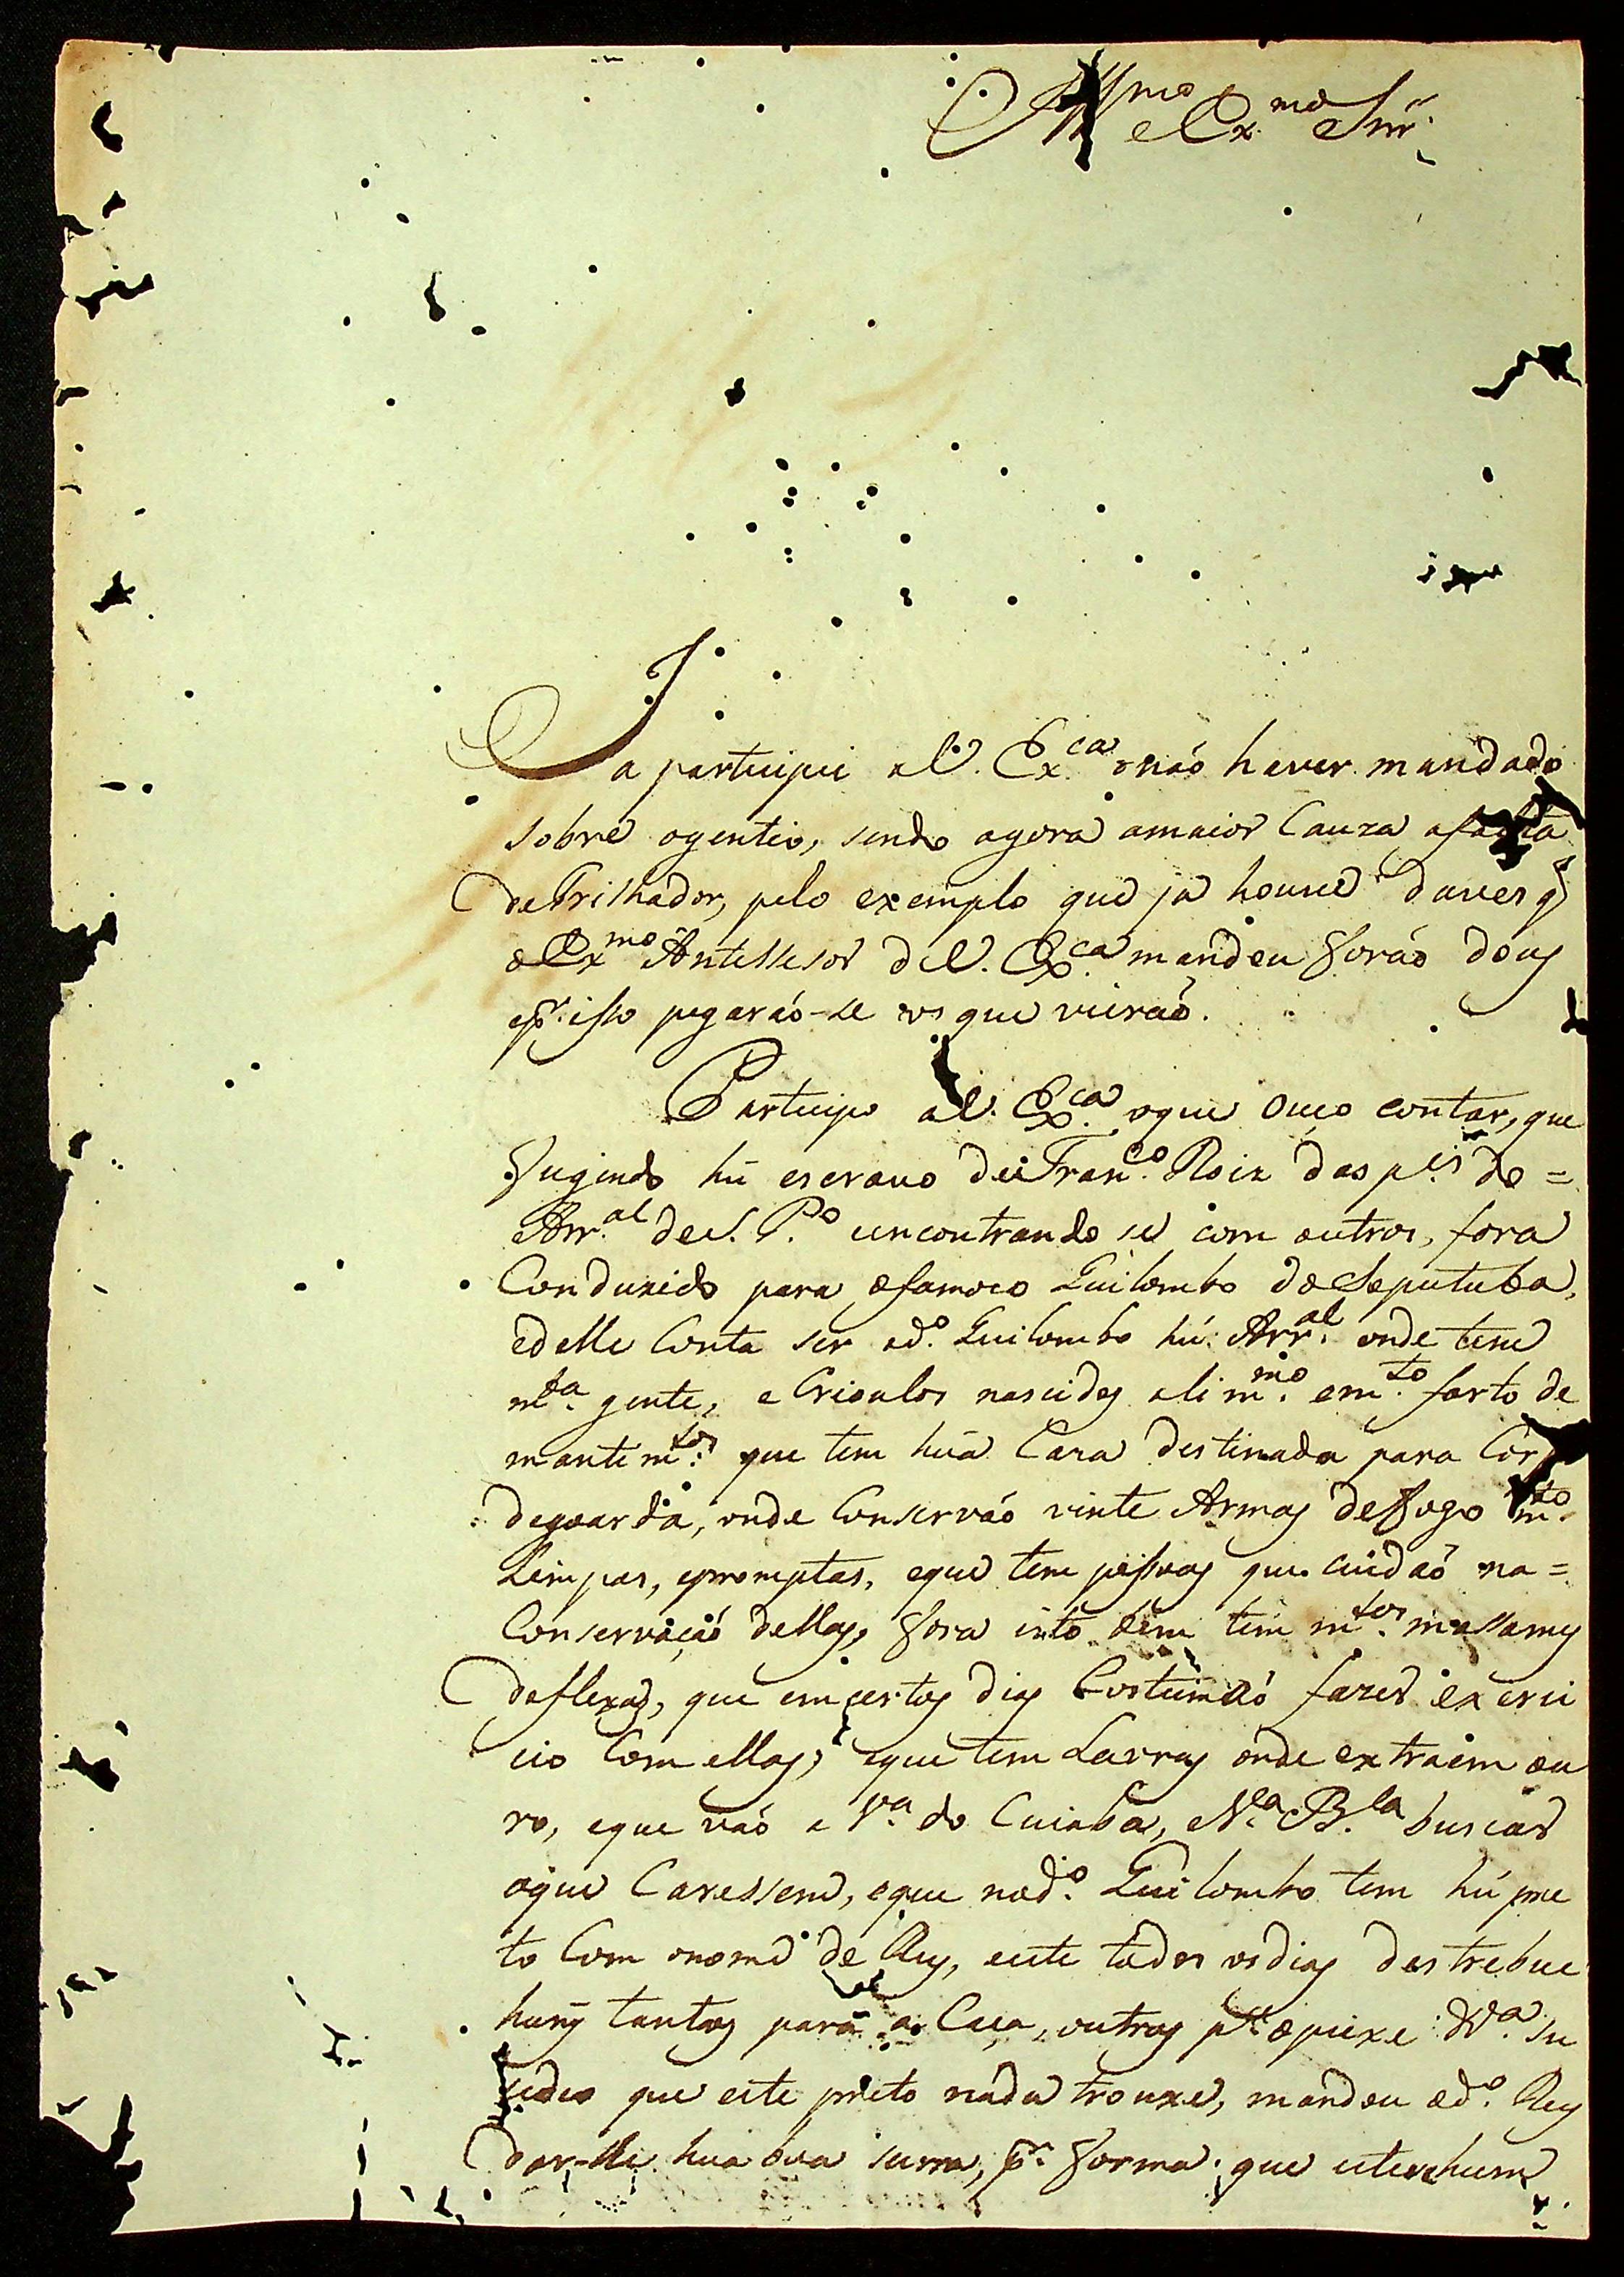 Ill.mo e Ex.mo Snr.
Ja participei a V. Ex.ca o naó haver mandado
sobre o gentio, sendo agora a maior Cauza a falta
de Trilhador, pelo exemplo que ja houve daver q
o Ex.mo Antessesor de V. Ex.ca mandou foráo dous
e p.r isso pegaráo-se os que vieraó.
Participo a V. Ex.ca o que Ouço contar, que
fugindo hú escravo de Fran.co Roiz das p.es do =
Arr.al de S. P.o encontrando se com outros, fora
Conduzido para o famozo Quilombo do Seputuba,
e delle Conta ser o d.o Quilombo hú Arr.al onde tem
m.ta gente, e Crioulos nascidos ali m.mo e m.to farto de
mantim.tos que tem húa Caza destinada para Corpo
de goarda, onde Conserváo vinte Armas de fogo m.to
Limpas, e promptas, e que tem pessoas que cuidaó na =
Conservaçaó dellas, fora isto tem m.tos massamos
de flexas, que em certos dias Costumaó fazer exerci
cio Com ellas, e que tem Lavras onde extraem ou
ro, e que váo a V.a do Cuiaba, e V.a B.la buscar
o que Caressem, e que no d.o Quilombo tem hú pre
to Com o nome de Rey, e este todos os dias destrebue
huns tantos para a Caça, outros p.a o peixe V.a su
sedeo que este preto nada trouxe, mandou o d.o Rey
dar-lhe húa boa surra, p.r forma que esteve hum